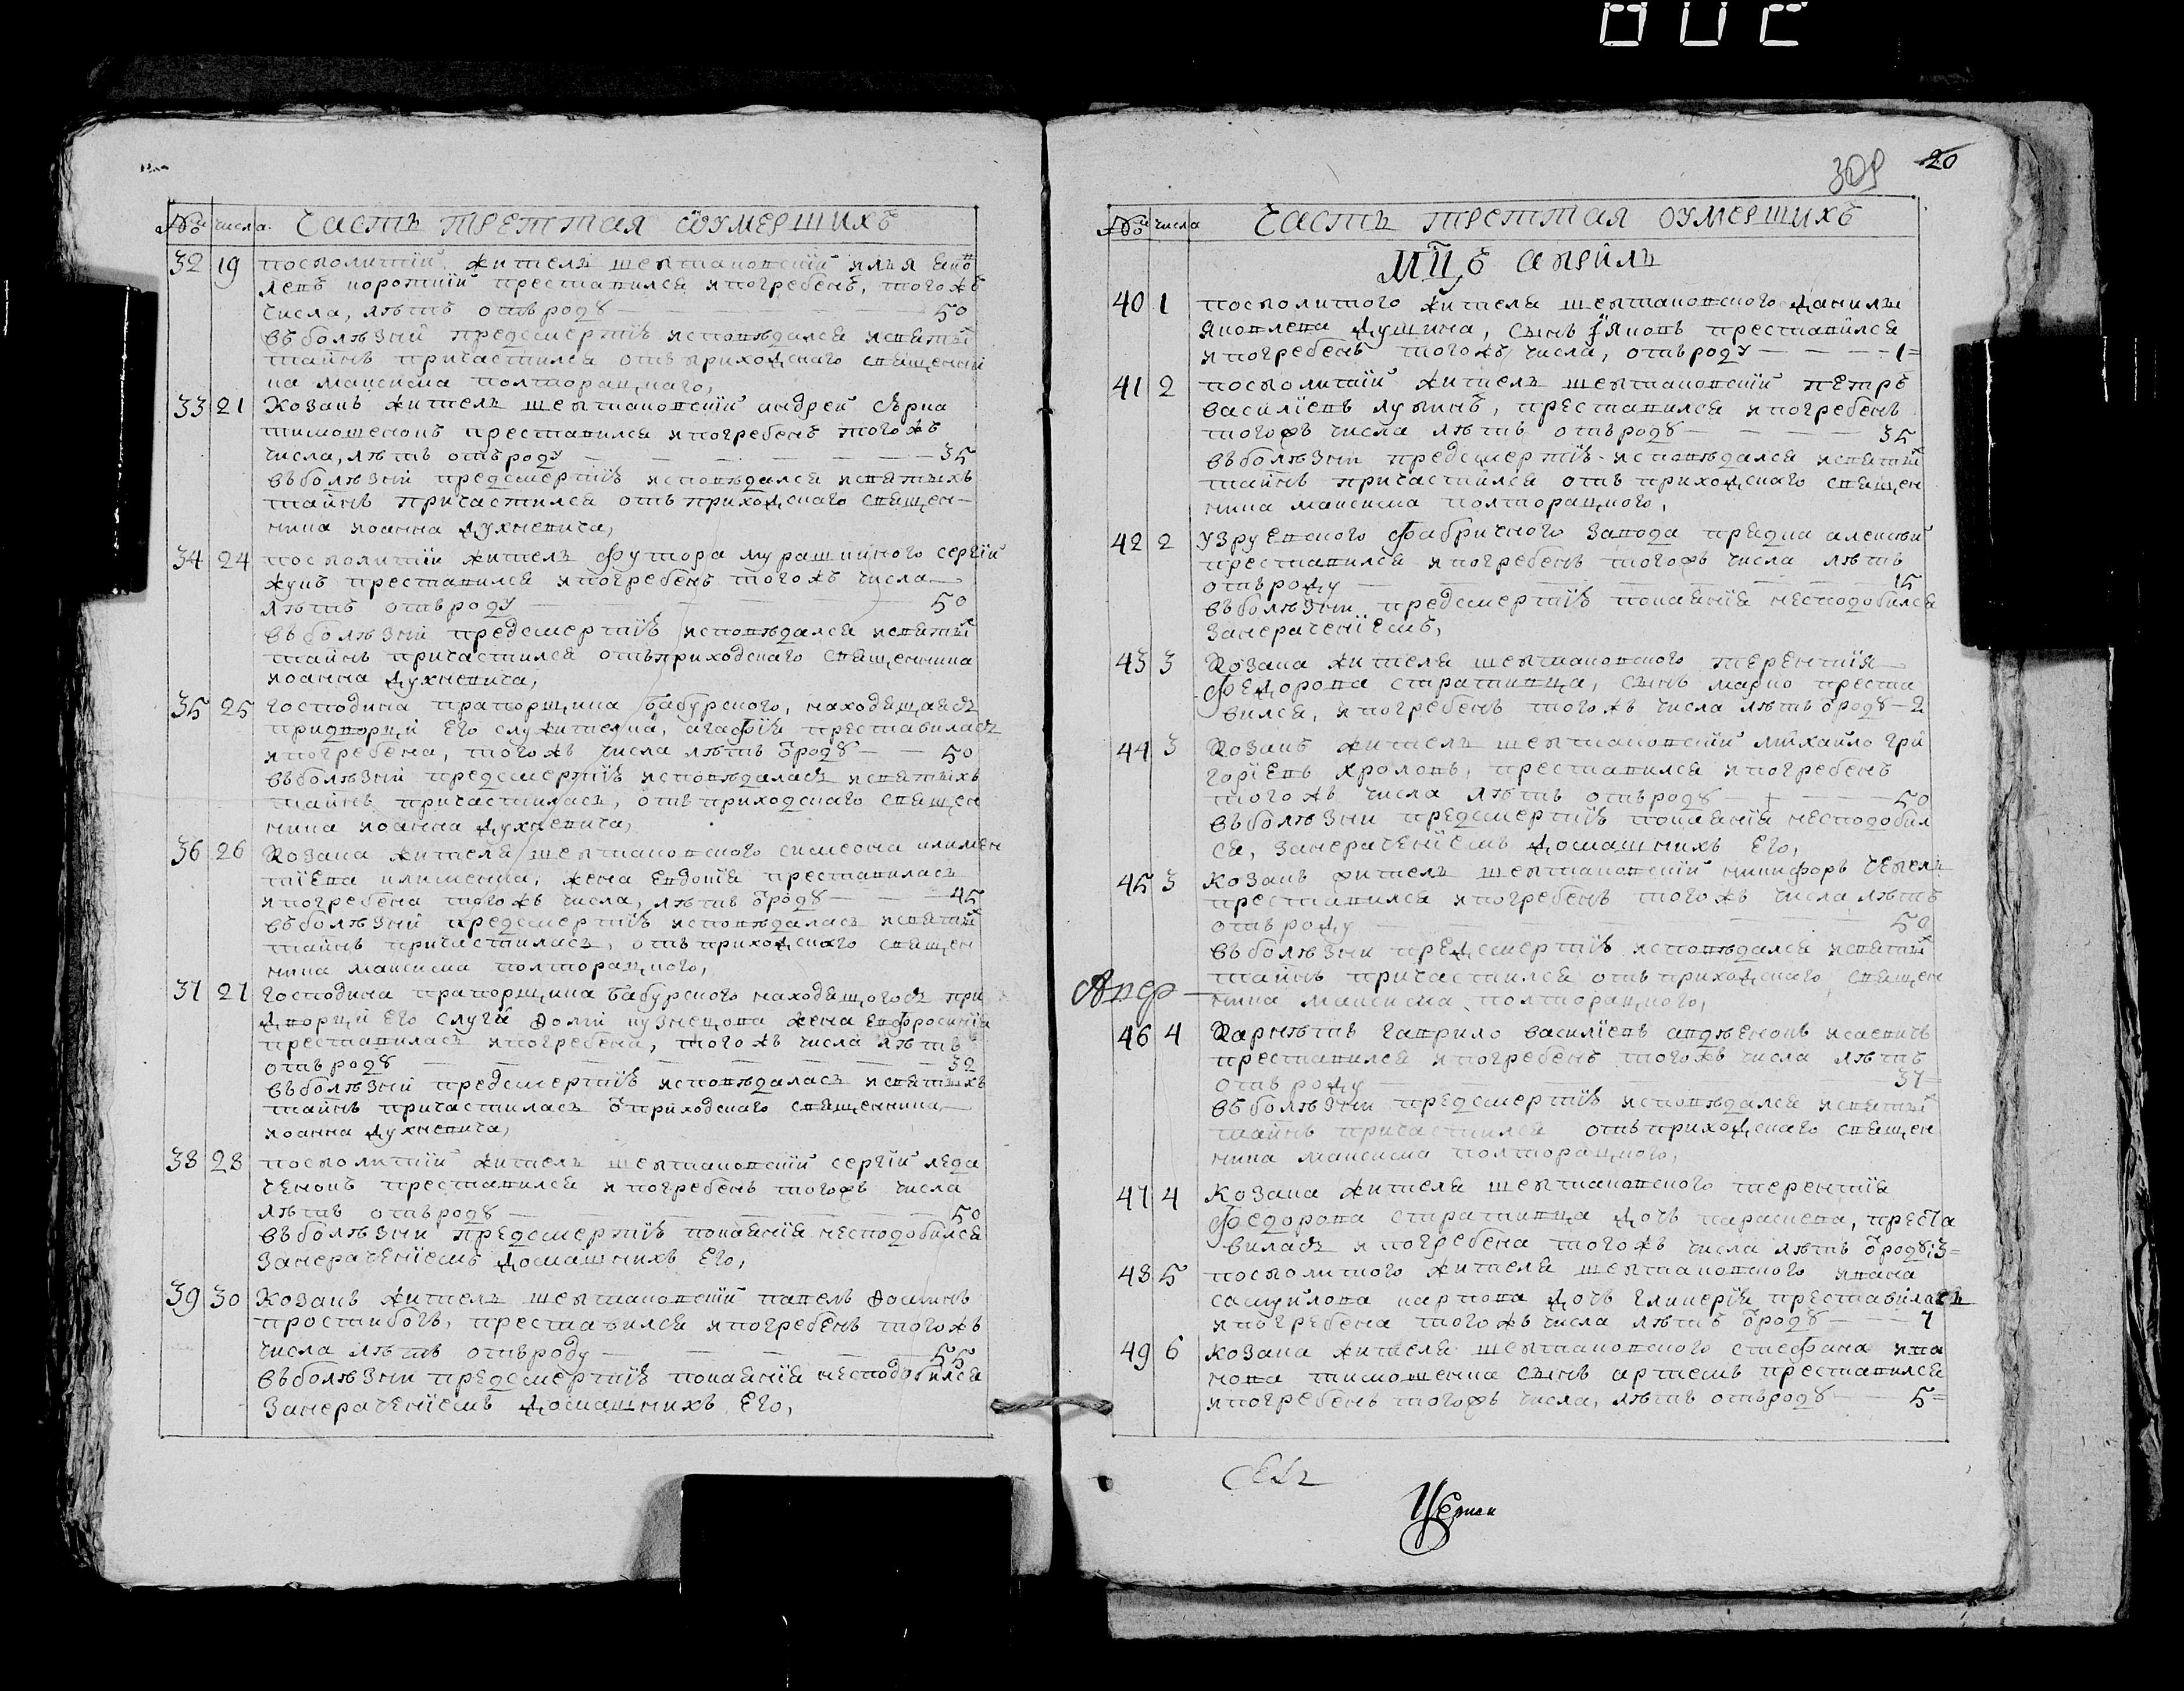 № числа. Часть треттая оумершихъ
32 19 посполитій житель шептаковскій илья яков
левъ короткій преставился и погребенъ, тогожъ
числа, лѣтъ отъ роду — 50
въ болѣзни предсмертіѣ исповѣдался и святых
тайнъ причастился отъ приходскаго священни
ка максима полторацкаго,
33 21 Козакъ житель шептаковскій андрей сѣрка
тимошенокъ преставился и погребенъ тогожъ
числа, лѣтъ отъ роду — 35
въ болѣзни предсмертіѣ исповѣдался и святыхъ
тайнъ причастился отъ приходскаго священ-
ника иоанна духневича,
34 24 посполитій житель футора мурашкиного сергій
жукъ преставился и погребенъ тогожъ числа —
лѣтъ отъ роду — 50
въ болѣзни предсмертіѣ исповѣдался и святых
тайнъ причастился отъ приходскаго священника
иоанна духневича,
35 25 Господина прапорщика бабурского, находящаясь
при дворци его служителка, агафія преставилась
и погребена, тогожъ числа лѣтъ ѿ роду — 50
въ болѣзни предсмертіѣ исповѣдалась и святыхъ
тайнъ причастилась, отъ приходскаго священ
ника иоанна духневича,
36 26 Козака жителя шептаковского симеона климен
тіева клименка, жена евдокія преставилась
и погребена тогожъ числа, лѣтъ ѿ роду — 45
въ болѣзни предсмертіѣ исповѣдалась и святых
тайнъ причастилась, отъ приходскаго священ
ника максима полторацкого,
37 27 Господина прапорщика бабурского находящогось при
дворци его слуги фомы кузнецова жена евфросинія
преставилась и погребена, тогожъ числа лѣтъ
отъ роду — 32
въ болѣзни предсмертіѣ исповѣдалась и святыхъ
тайнъ причастилась ѿ приходскаго священника —
иоанна духневича,
38 28 посполитій житель шептаковскій сергій леда
ченокъ преставился и погребенъ тогожъ числа
лѣтъ отъ роду — 50
въ болѣзни предсмертіѣ покаянія несподобился
занераченіемъ домашнихъ его,
39 30 Козакъ житель шептаковскій павелъ фоминъ
простибогъ, преставился и погребенъ тогожъ
числа лѣтъ отъ роду — 55
въ болѣзни предсмертіѣ покаянія несподобился
занераченіемъ домашнихъ его,
309 20
№ числа Часть треттая оумершихъ
мцъ апрѣиль
40 1 посполитого жителя шептаковского данилы
яковлева душина, сынъ яковъ преставился
и погребенъ тогожъ числа, отъ роду — 1
41 2 посполитій житель шептаковскій петръ
василіевъ лупинъ, преставился и погребенъ
тогожъ числа лѣтъ отъ роду — 35
въ болѣзни предсмертіѣ исповѣдался и святых
тайнъ причастился отъ приходскаго священ
ника максима полторацкого,
42 2 фабричного завода алексѣй
преставился и погребенъ тогожъ числа лѣтъ
отъ роду — 15
въ болѣзни предсмертіѣ покаянія несподобился
занераченіемъ,
43 3 Козака жителя шептаковского терентія —
федорова стративца, сынъ марко преста
вился, и погребенъ тогожъ числа лѣтъ ѿ роду — 2
44 3 Козакъ житель шептаковскій михайло гри
горіевъ кроловъ, преставился и погребенъ
тогожъ числа лѣтъ отъ роду — 50
въ болѣзни предсмертіѣ покаянія несподобил
ся, занераченіемъ домашнихъ его,
45 3 Козакъ житель шептаковскій никифоръ чепель
преставился и погребенъ тогожъ числа лѣтъ
отъ роду — 50
въ болѣзни предсмертіѣ исповѣдался и святых
тайнъ причастился отъ приходскаго священ
ника максима полторацкого,
46 4 гаврило василіевъ исаевичъ
преставился и погребенъ тогожъ числа лѣтъ
отъ роду — 37
въ болѣзни предсмертіѣ исповѣдался и святых
тайнъ причастился отъ приходскаго священ
ника максима полторацкого,
47 4 Козака жителя шептаковского терентія
федорова стративца дочь параскева, преста
вилась и погребена тогожъ числа лѣтъ ѿ роду, 3
48 5 посполитого жителя шептаковского ивана
самуилова карпова дочь гликерія преставилась
и погребена тогожъ числа лѣтъ ѿ роду — 7
49 6 козака жителя шептаковского стефана ива
нова тимошенка сынъ артемъ преставился
и погребенъ тогожъ числа, лѣтъ отъ роду — 5